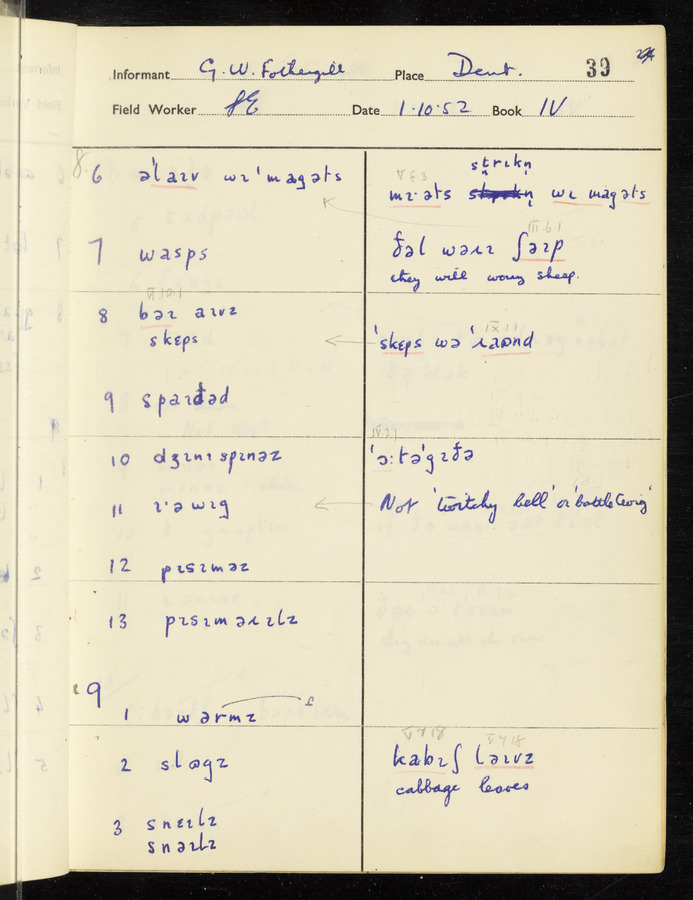 Informant G. W. Fothergill Place Dent. 39
Field Worker Date 1·10·52 Book IV
8.
6 ə'laɪv wɪ'magəts
strɪkn̩
V 8 3
mɪ·əts wɪ magəts
III·6·1
7 wasps
ðəl wəɪɪ ʃəɪp
they will worry sheep.
VI 10.1
8 bəɪ aɪvz
skɛps
'skɛps wə'ɹaʊnd
IX 11
9 spaɪdəd
10 dʒɪnɪspɪnəz
'ɔ:tə'gɪðə
11 ɪ·əwɪg
Not 'twitchy bell' or 'battletwig'
12 pɪsɪməz
13 pɪsɪməɪɪlz
9
1 wərmz
2 slʊgz
V 7 18 V 7 18
kabɪʃ ləɪvz
cabbage leaves
3 snɛɪlz
snəɪlz